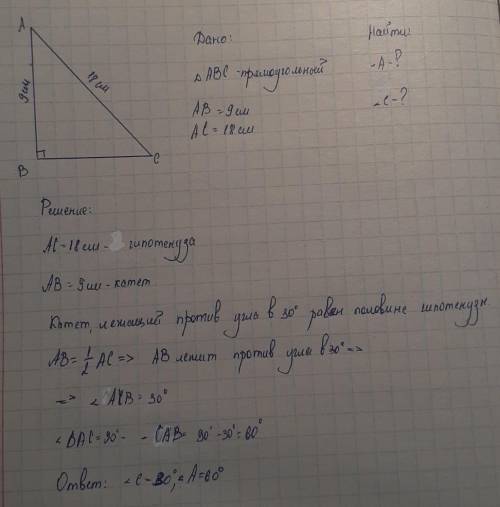 A
9 см
18 см
B
C
Дано:
Найти:
△ABC - прямоугольный
∠A - ?
AB = 9 см
∠C - ?
AC = 18 см
Решение:
AC = 18 см - гипотенуза
AB = 9 см - катет
Катет, лежащий против угла в 30° равен половине гипотенузы.
AB = 1/2 AC => AB лежит против угла в 30° =>
=> ∠ACB = 30°
∠BAC = 90° - ∠CAB = 90° - 30° = 60°
Ответ: ∠C = 30°, ∠A = 60°